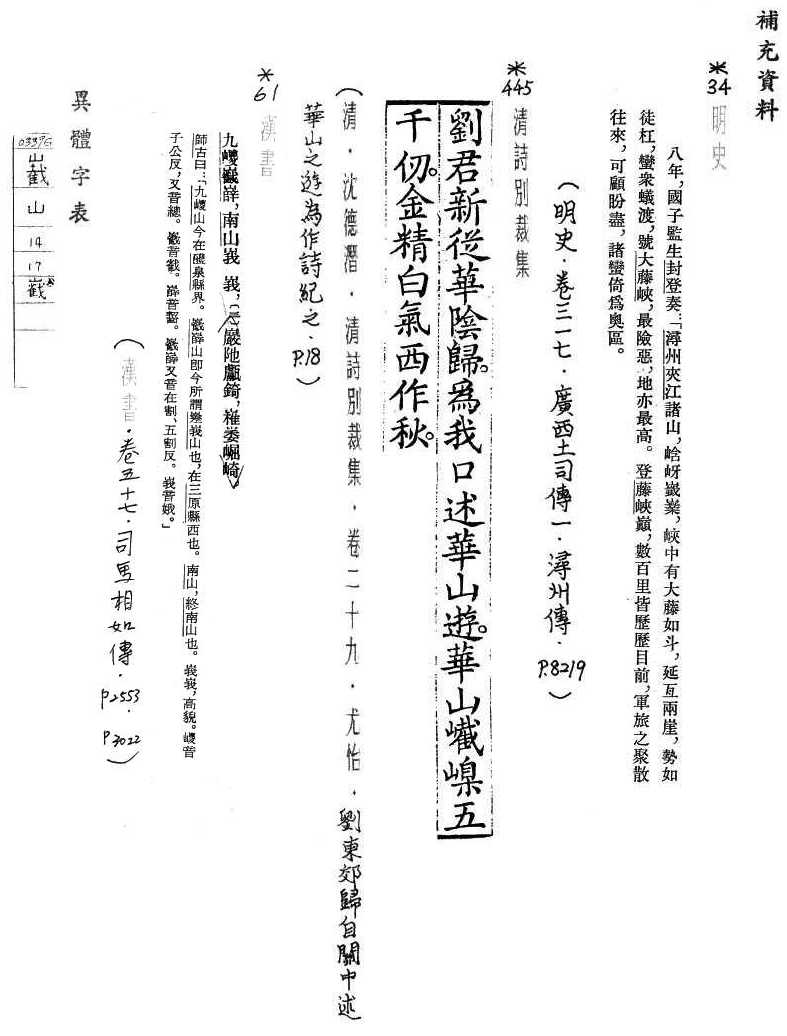 補充資料
*34 明史
八年，國子監生封登奏：「潯州夾江諸山，峆岈巀嶪，峽中有大藤如斗，延亙兩崖，勢如
徒杠，蠻衆蟻渡，號大藤峽，最險惡，地亦最高。登藤峽巔，數百里皆歷歷目前，軍旅之聚散
往來，可顧盼盡，諸蠻倚爲奧區。
（明史．卷三一七．廣西土司傳一．潯州傳．P.8219）
*445 清詩別裁集
劉君新從華陰歸。爲我口述華山遊。華山巀嵲五
千仞。金精白氣西作秋。
（清．沈德潛．清詩別裁集．卷二十九．尤怡．劉東郊歸自關中述
華山之遊為作詩紀之．P.18）
*61 漢書
九嵏巀嶭，南山峩峩，〔三〕巖阤甗錡，嶊崣崛崎。
師古曰：「九嵏山今在醴泉縣界。巀嶭山即今所謂嵳峩山也，在三原縣西也。南山，終南山也。峩峩，高貌。嵏音
子公反，又音總。巀音截。嶭音齧。巀嶭又音在割、五割反。峩音娥。」
（漢書．卷五十七．司馬相如傳．P2553．P.3022）
異體字表
山
14
17
巀